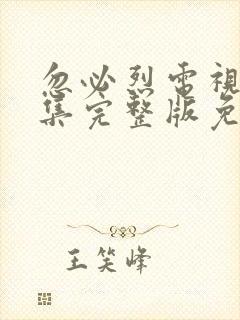 忽必烈電視
集完整版免
王笑峰